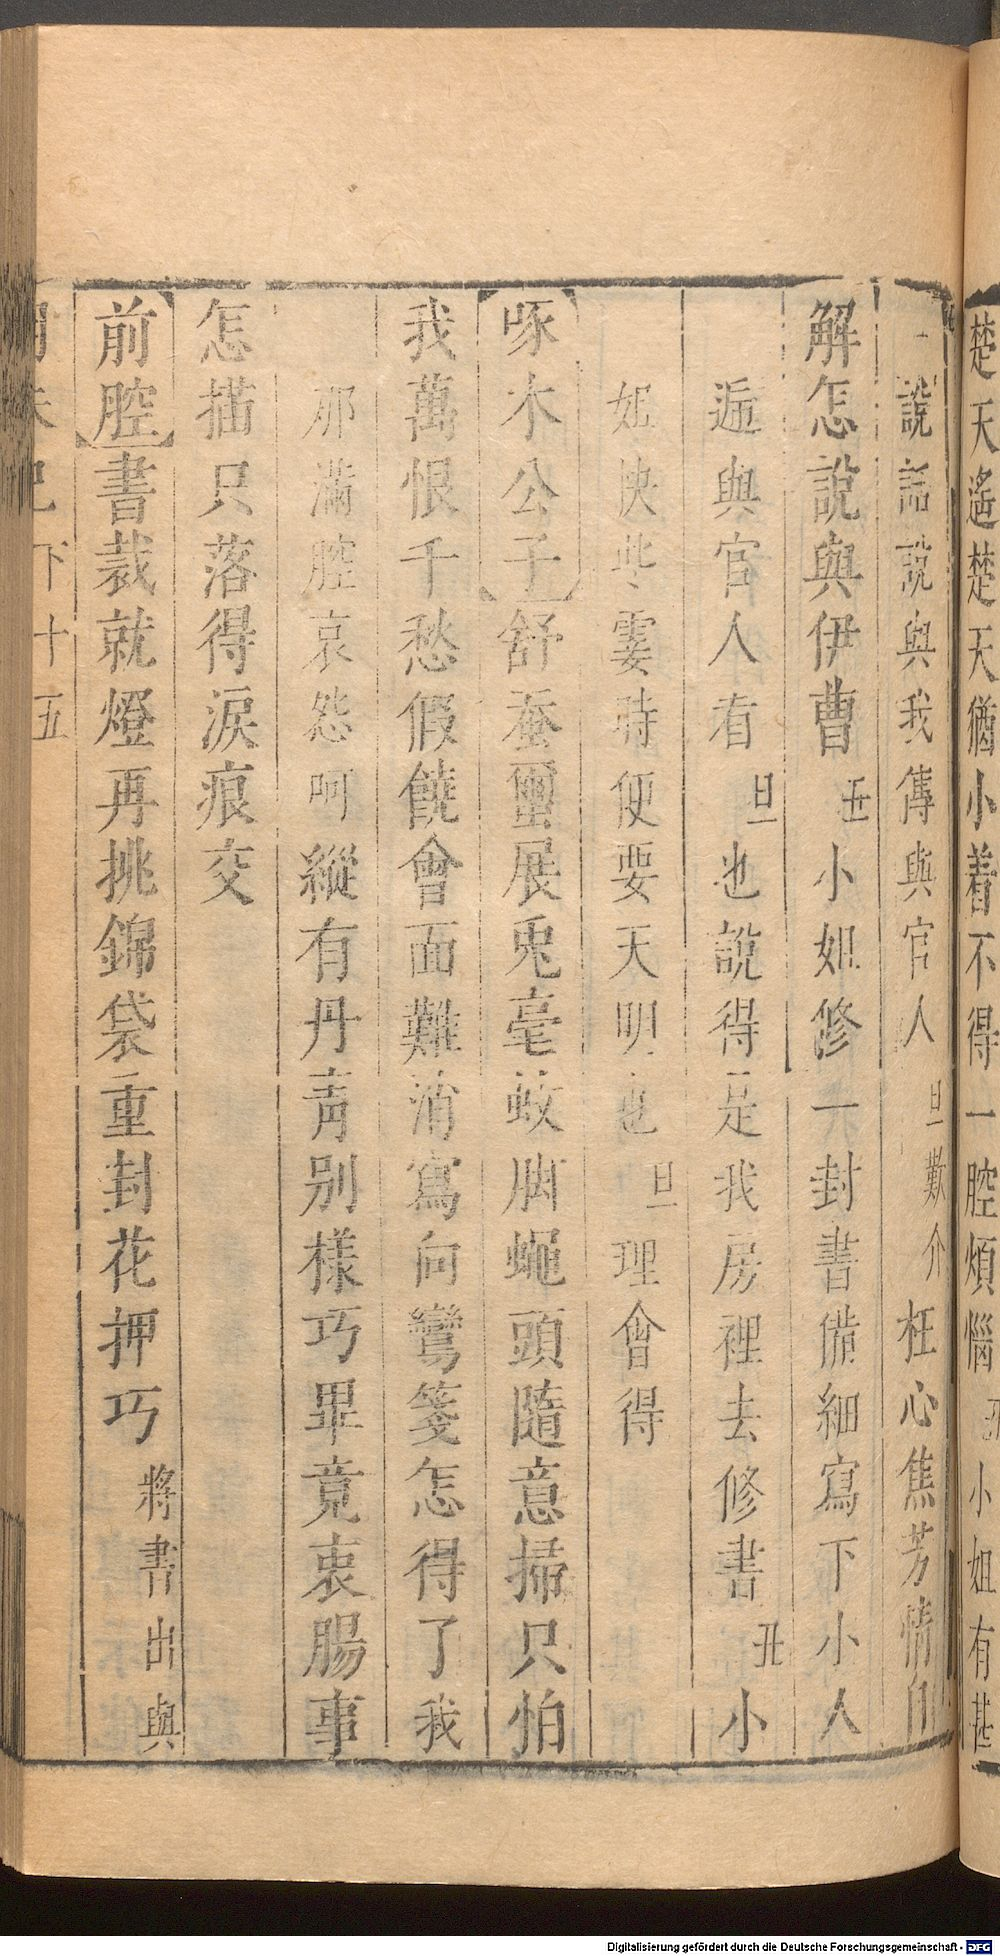 楚天遙楚天猶小着不得一腔煩惱丑小姐有甚
說話說與我傳與官人旦歎介枉心焦芳情自
解怎說與伊曹丑小姐修一封書備細寫下小人
遞與官人看旦也說得是我房裡去修書丑小
姐快些霎時便要天明也旦理會得
啄木公子舒蚕璽展兎毫蚊脚蠅頭隨意掃只怕
我萬恨千愁假饒會面難消寫向鸞箋怎得了我
那滿腔哀怨呵縱有丹青别樣巧畢竟衷腸事
怎描只落得淚痕交
前腔書裁就燈再挑錦袋重封花押巧將書出與
下十五
Digitalisierung gefördert durch die Deutsche Forschungsgemeinschaft - DFG